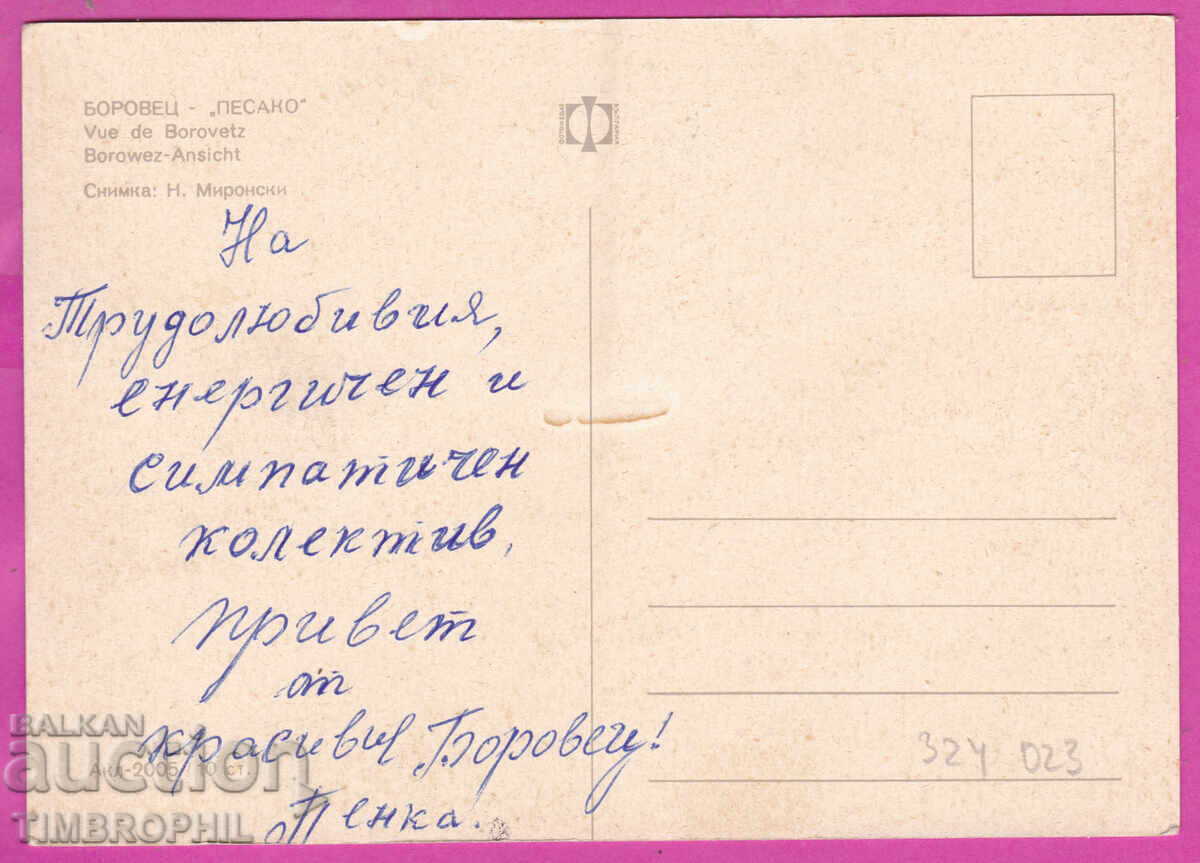 БОРОВЕЦ - „ПЕСАКО"
Vue de Borovetz
Borowez-Ansicht
Снимка: Н. Миронски
На
Трудолюбивия,
енергичен и
симпатичен
колектив,
привет
от
красивия Боровец!
Пенка.
Акл-2005 10 ст.
324 023
BALKAN
auction
TIMBROPHIL